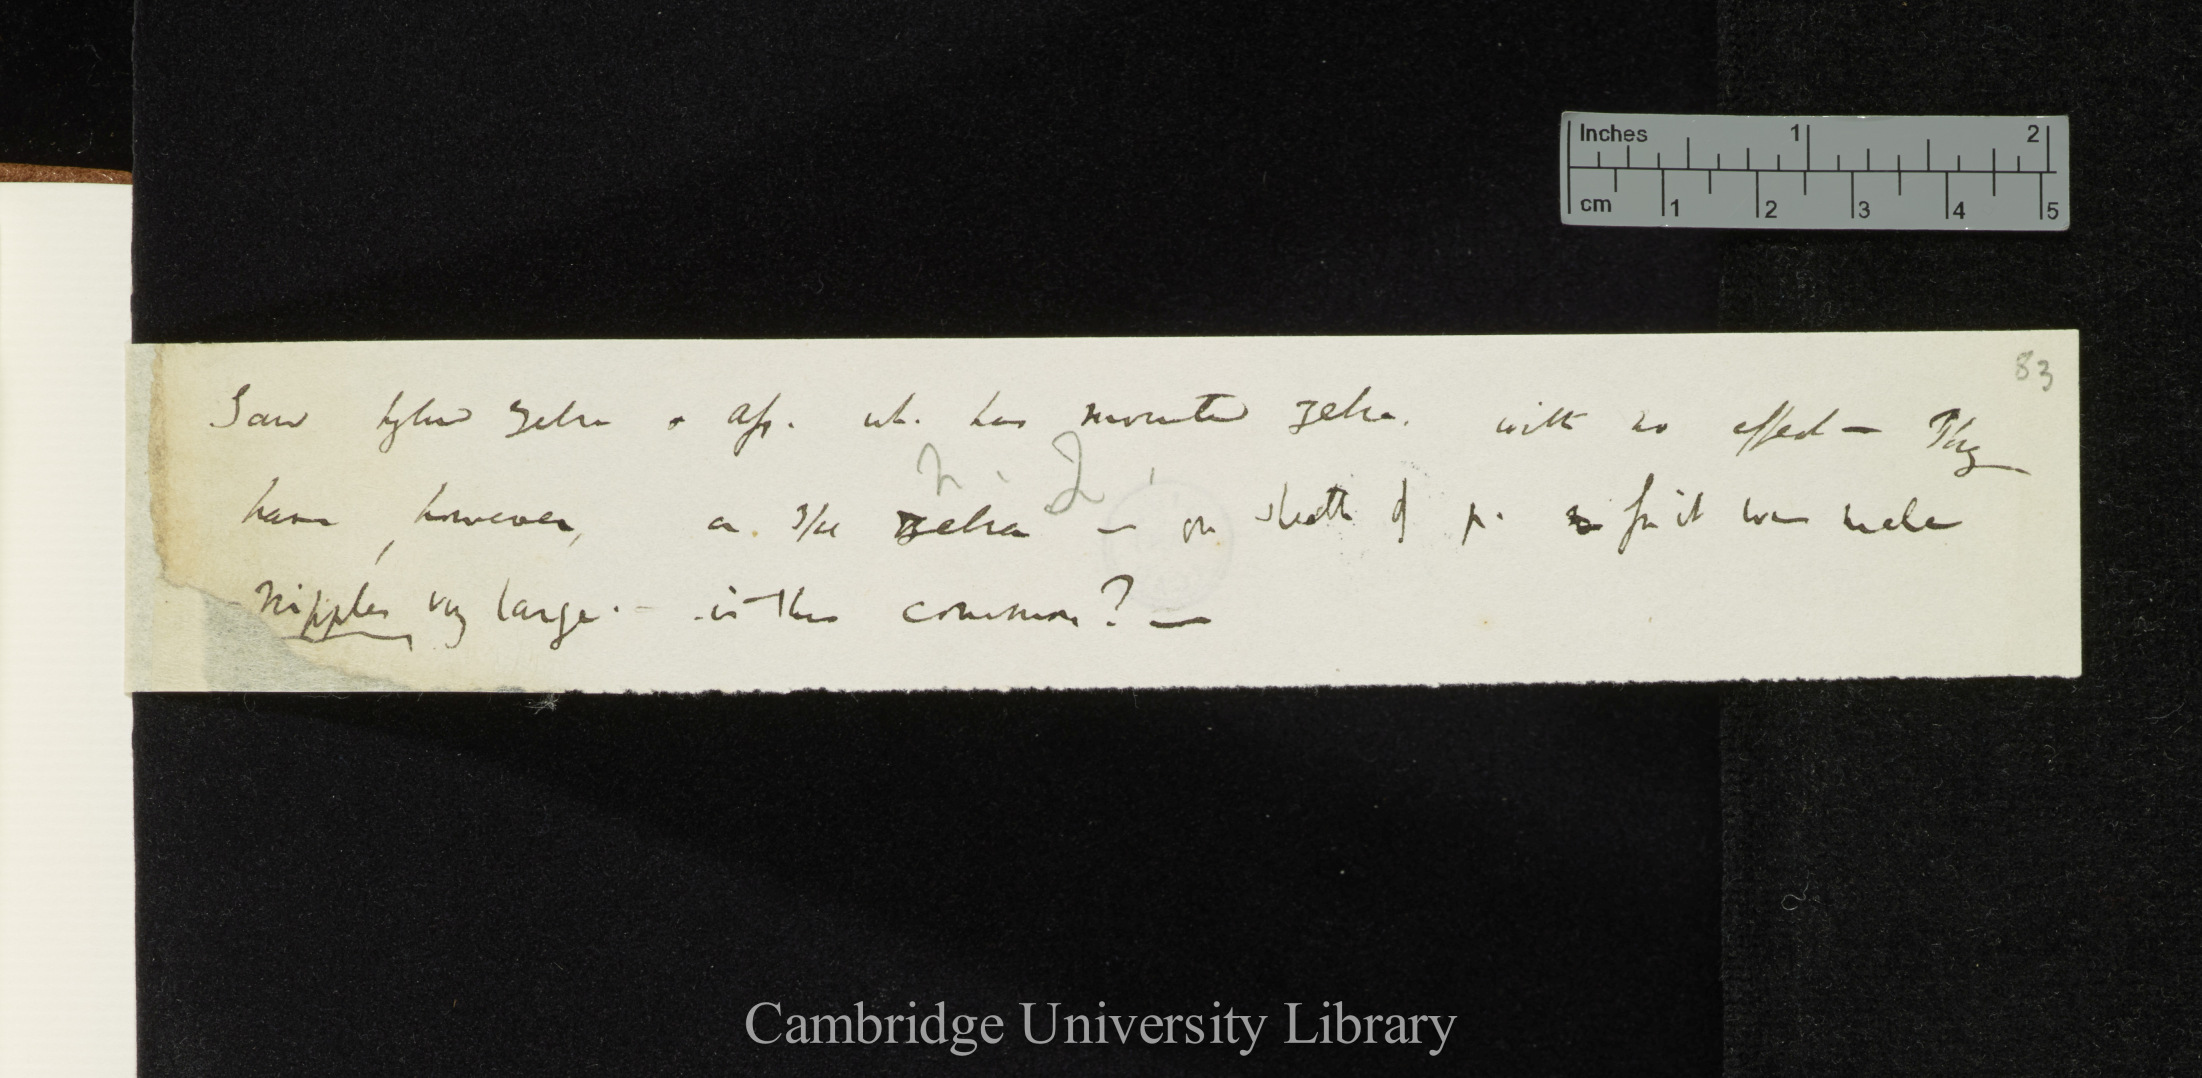 Inches 1 2
cm 1 2 3 4 5
83
Saw hybrid Zebra & Ass. wh. has mounted Zebra. with no effect — They
have, however, a 3/4 zebra — on sheath of p. for it was male
nipples very large. — is this common? —
Cambridge University Library